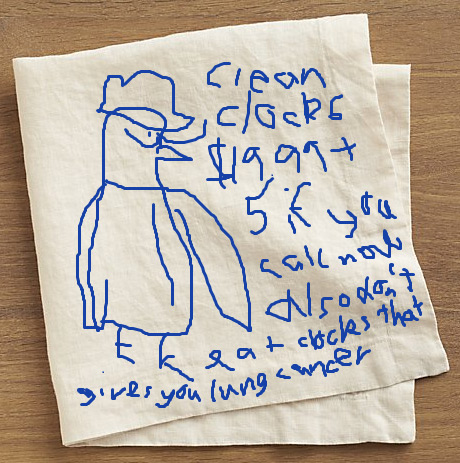 clean
clocks
$1999+
5 if you
call now
also don't
eat clocks that
gives you lung cancer